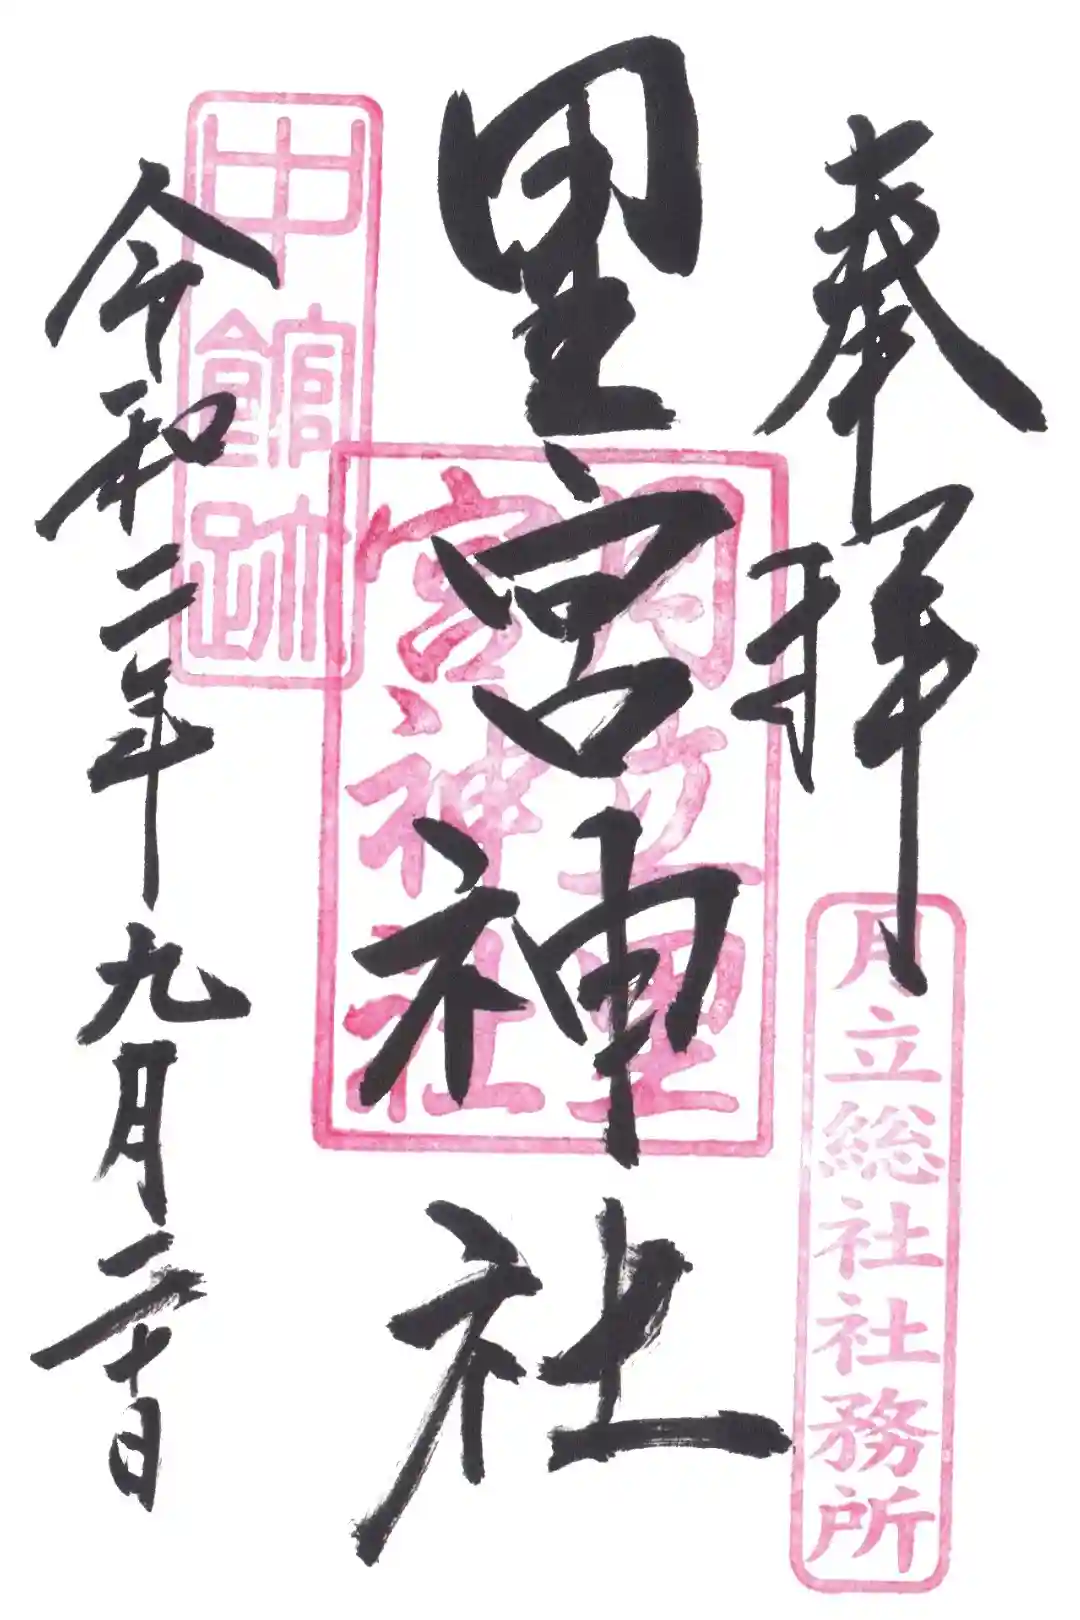 奉拝
月立総社社務所
里宮神社
月立里
宮神社
令和二年九月二十日
中館跡